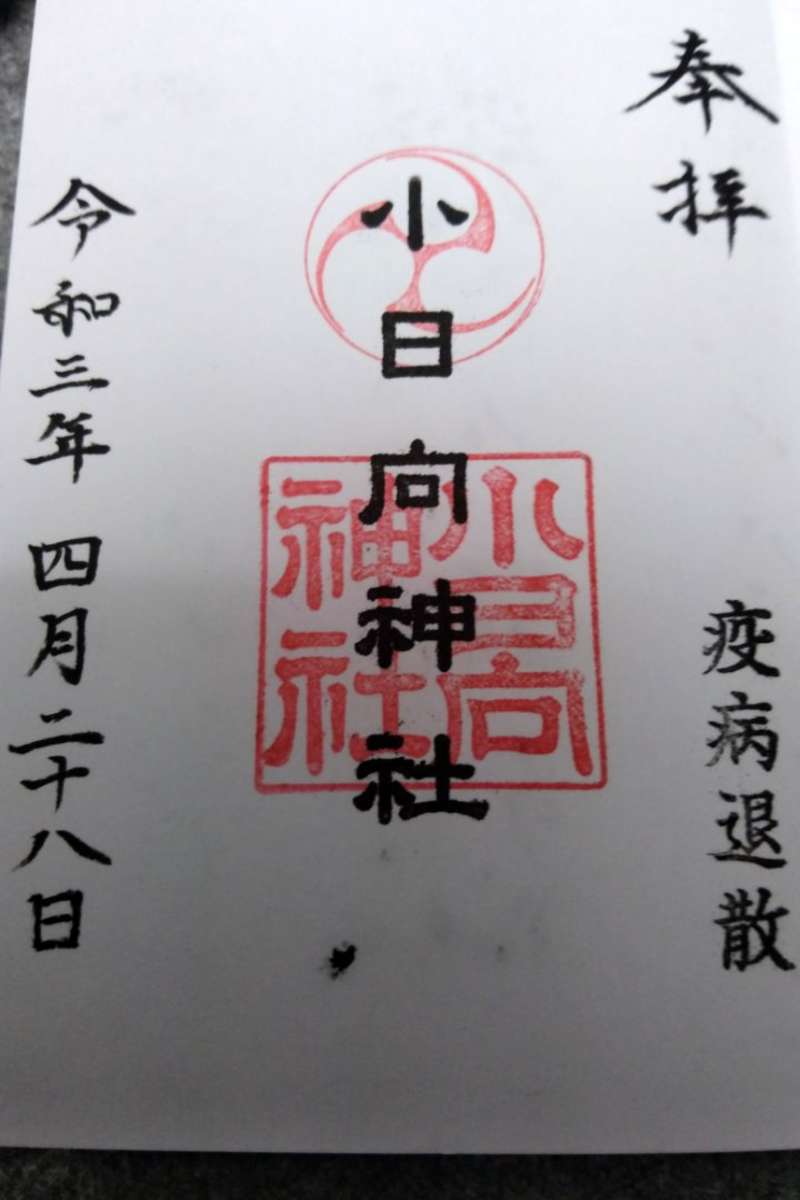 奉拝
疫病退散
小日向神社
小日向
神社
令和三年 四月二十八日